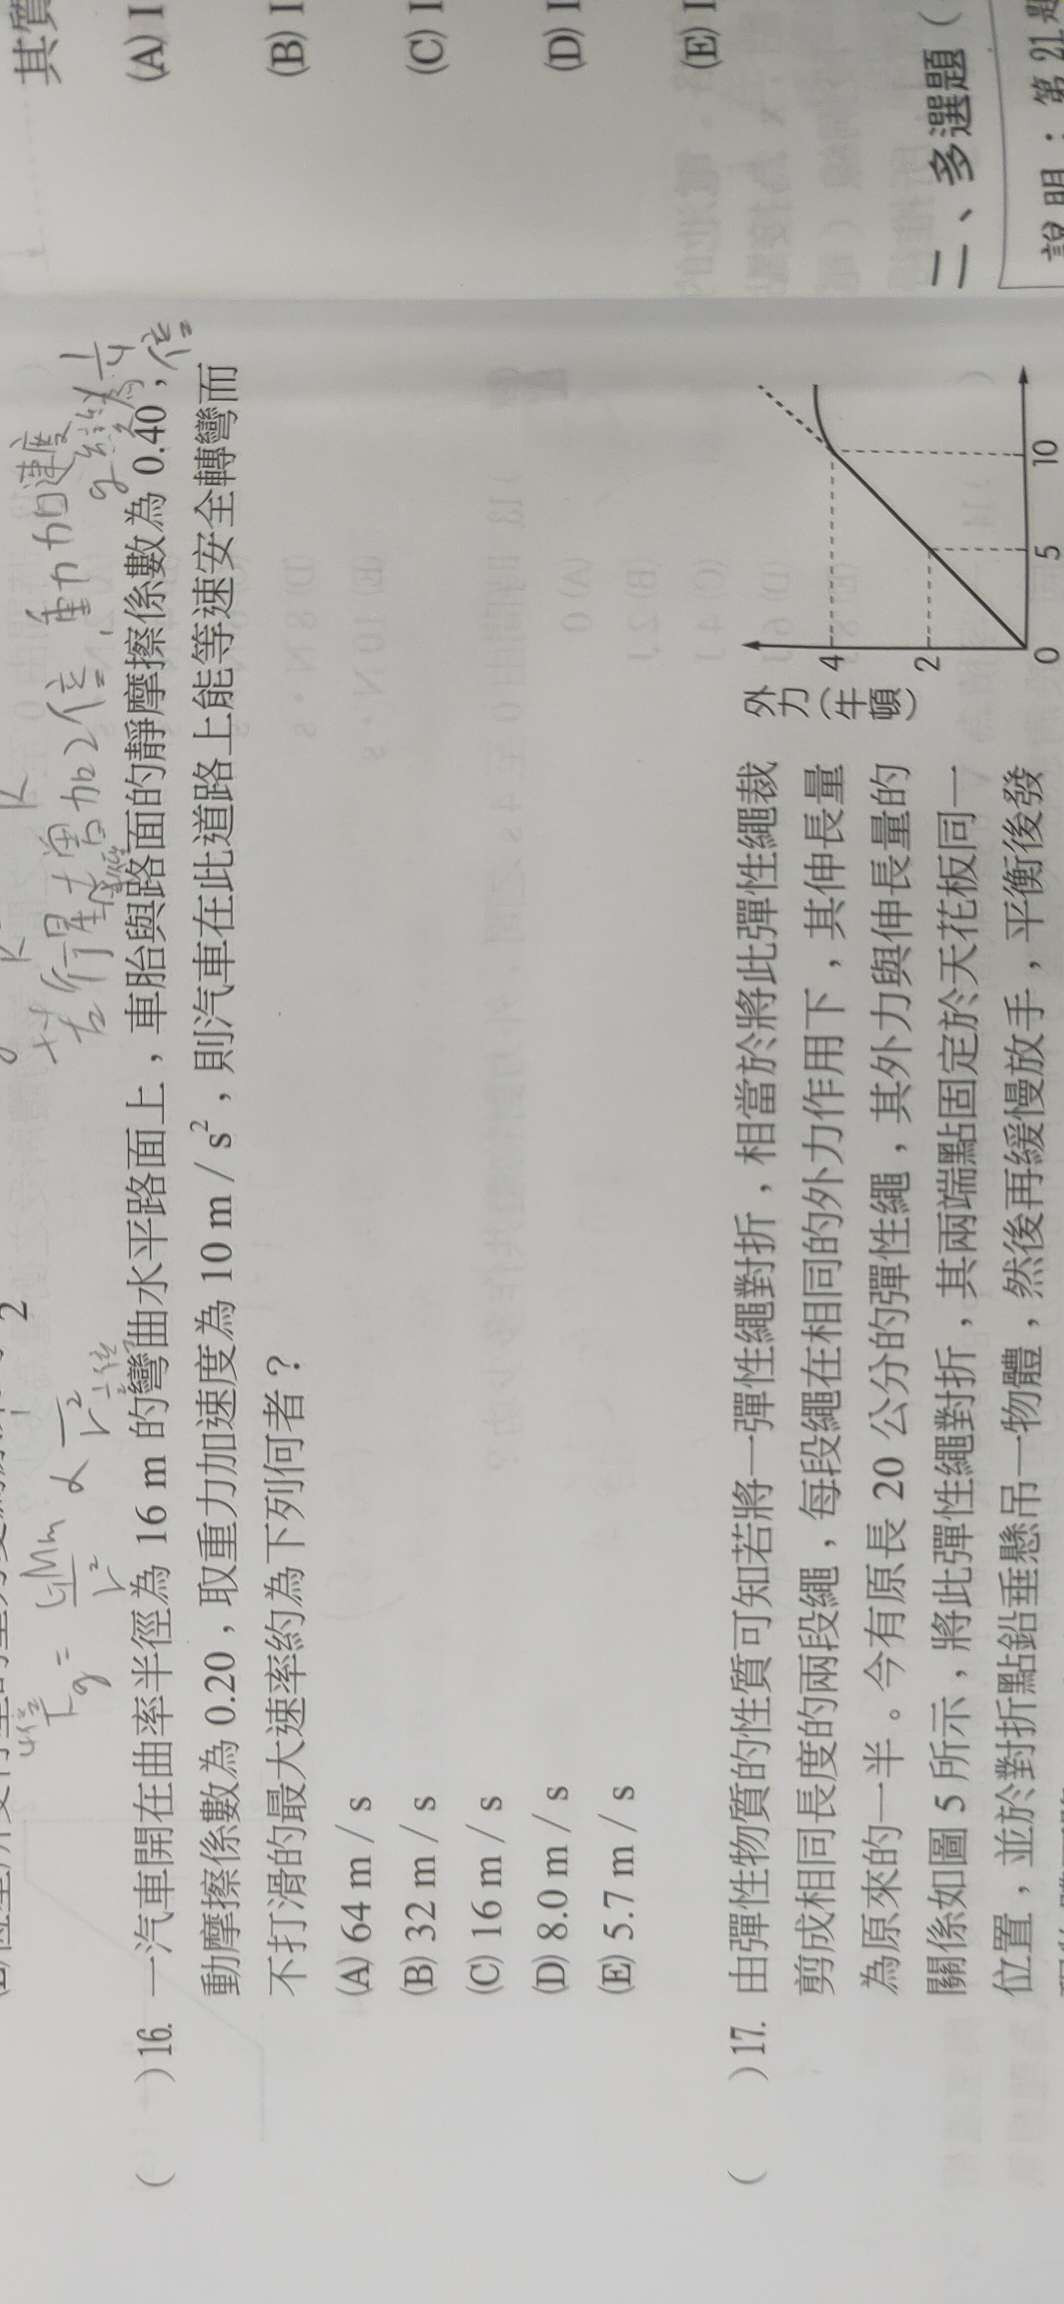 若行星半徑增加2倍,重力加速度
g 縮為 1/4 倍
g = GMm/r² ∝ 1/r²
( )16. 一汽車開在曲率半徑為 16 m 的彎曲水平路面上，車胎與路面的靜摩擦係數為 0.40，
動摩擦係數為 0.20，取重力加速度為 10 m / s²，則汽車在此道路上能等速安全轉彎而
不打滑的最大速率約為下列何者？
(A) 64 m / s
(B) 32 m / s
(C) 16 m / s
(D) 8.0 m / s
(E) 5.7 m / s
( )17. 由彈性物質的性質可知若將一彈性繩對折，相當於將此彈性繩裁
剪成相同長度的兩段繩，每段繩在相同的外力作用下，其伸長量
為原來的一半。今有原長 20 公分的彈性繩，其外力與伸長量的
關係如圖 5 所示，將此彈性繩對折，其兩端點固定於天花板同一
位置，並於對折點鉛垂懸吊一物體，然後再緩慢放手，平衡後發
外力（牛頓）
4
2
0 5 10
其質
(A) 1
(B) 1
(C) 1
(D) 1
(E) 1
二、多選題（
說明：第 21 題